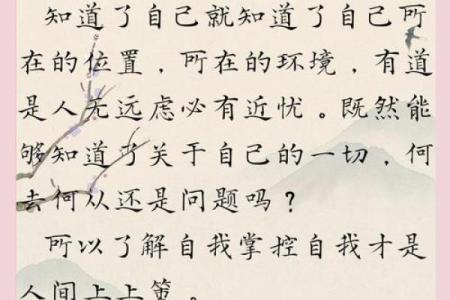 知道了自己就知道了自己所
在的位置，所在的环境，有道
是人无远虑必有近忧。既然能
够知道了关于自己的一切，何
去何从还是问题吗？
所以了解自我掌控自我才是
人间上上策。